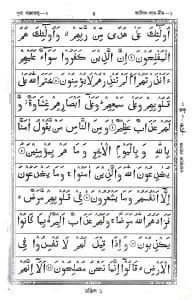 আলিফ-লাম-মীম—১
أُولَٰئِكَ عَلَىٰ هُدًى مِّن رَّبِّهِمْ وَأُولَٰئِكَ هُمُ
الْمُفْلِحُونَ إِنَّ الَّذِينَ كَفَرُوا سَوَاءٌ عَلَيْهِمْ
ءَأَنذَرْتَهُمْ أَمْ لَمْ تُنذِرْهُمْ لَا يُؤْمِنُونَ خَتَمَ اللَّهُ عَلَىٰ
قُلُوبِهِمْ وَعَلَىٰ سَمْعِهِمْ وَعَلَىٰ أَبْصَارِهِمْ غِشَاوَةٌ وَ
لَهُمْ عَذَابٌ عَظِيمٌ وَمِنَ النَّاسِ مَن يَقُولُ آمَنَّا
بِاللَّهِ وَبِالْيَوْمِ الْآخِرِ وَمَا هُم بِمُؤْمِنِينَ
يُخَٰدِعُونَ اللَّهَ وَالَّذِينَ آمَنُوا وَمَا يَخْدَعُونَ
إِلَّا أَنفُسَهُمْ وَمَا يَشْعُرُونَ فِي قُلُوبِهِم مَّرَضٌ
فَزَادَهُمُ اللَّهُ مَرَضًا وَلَهُمْ عَذَابٌ أَلِيمٌ بِمَا كَانُوا
يَكْذِبُونَ وَإِذَا قِيلَ لَهُمْ لَا تُفْسِدُوا فِي
الْأَرْضِ قَالُوا إِنَّمَا نَحْنُ مُصْلِحُونَ أَلَا إِنَّهُمْ
মঞ্জিল ১